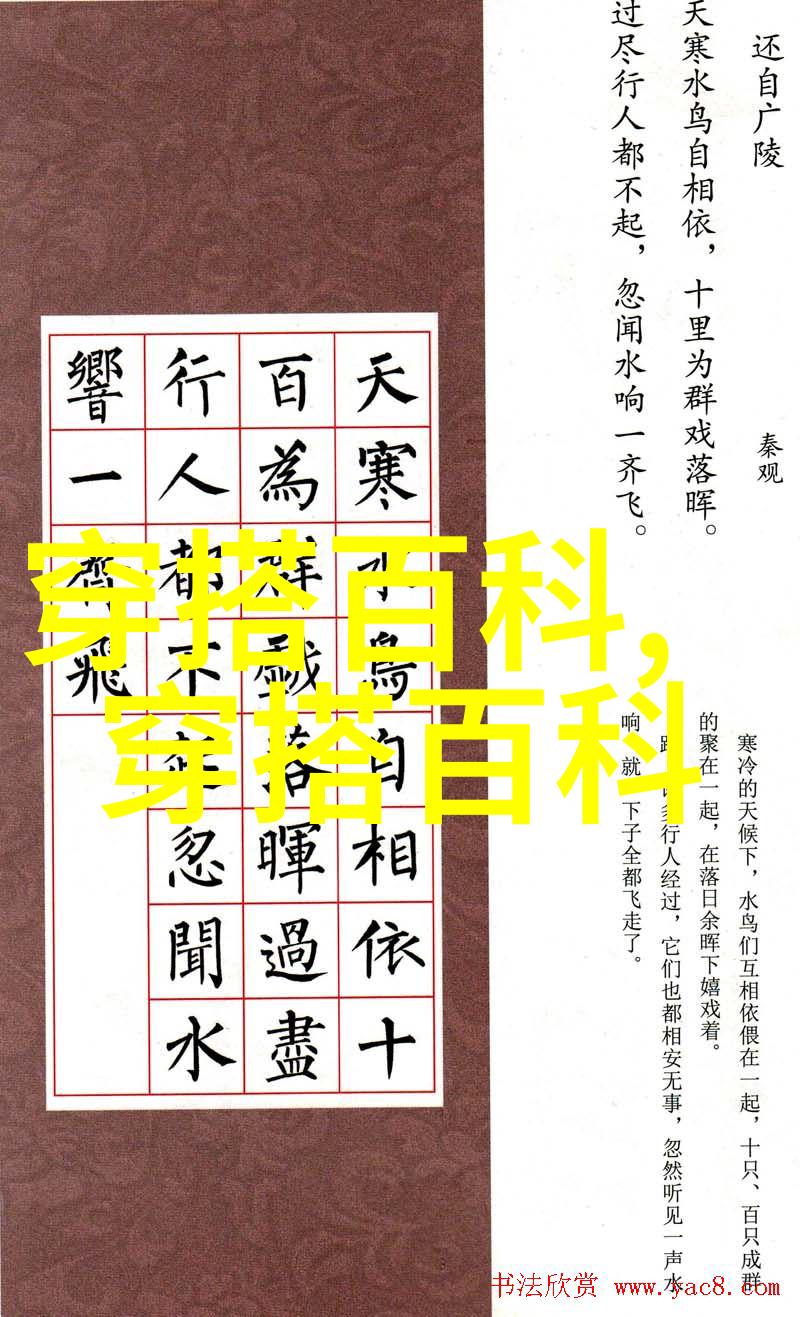 还自广陵
秦观
天寒水鸟自相依，十里为群戏落晖。
过尽行人都不起，忽闻水响一齐飞。
寒冷的天候下，水鸟们互相依偎在一起，十只、百只成群
的聚在一起，在落日余晖下嬉戏着。
多行人经过，它们也都相安无事，忽然听见一声水
响 就 下子全都飞走了。
天寒水鳥自相依十
百為群戲落暉過盡
行人都不起忽聞水
響一齊飛
穿搭百科,
穿搭百科
书法欣赏 www.yac8.com